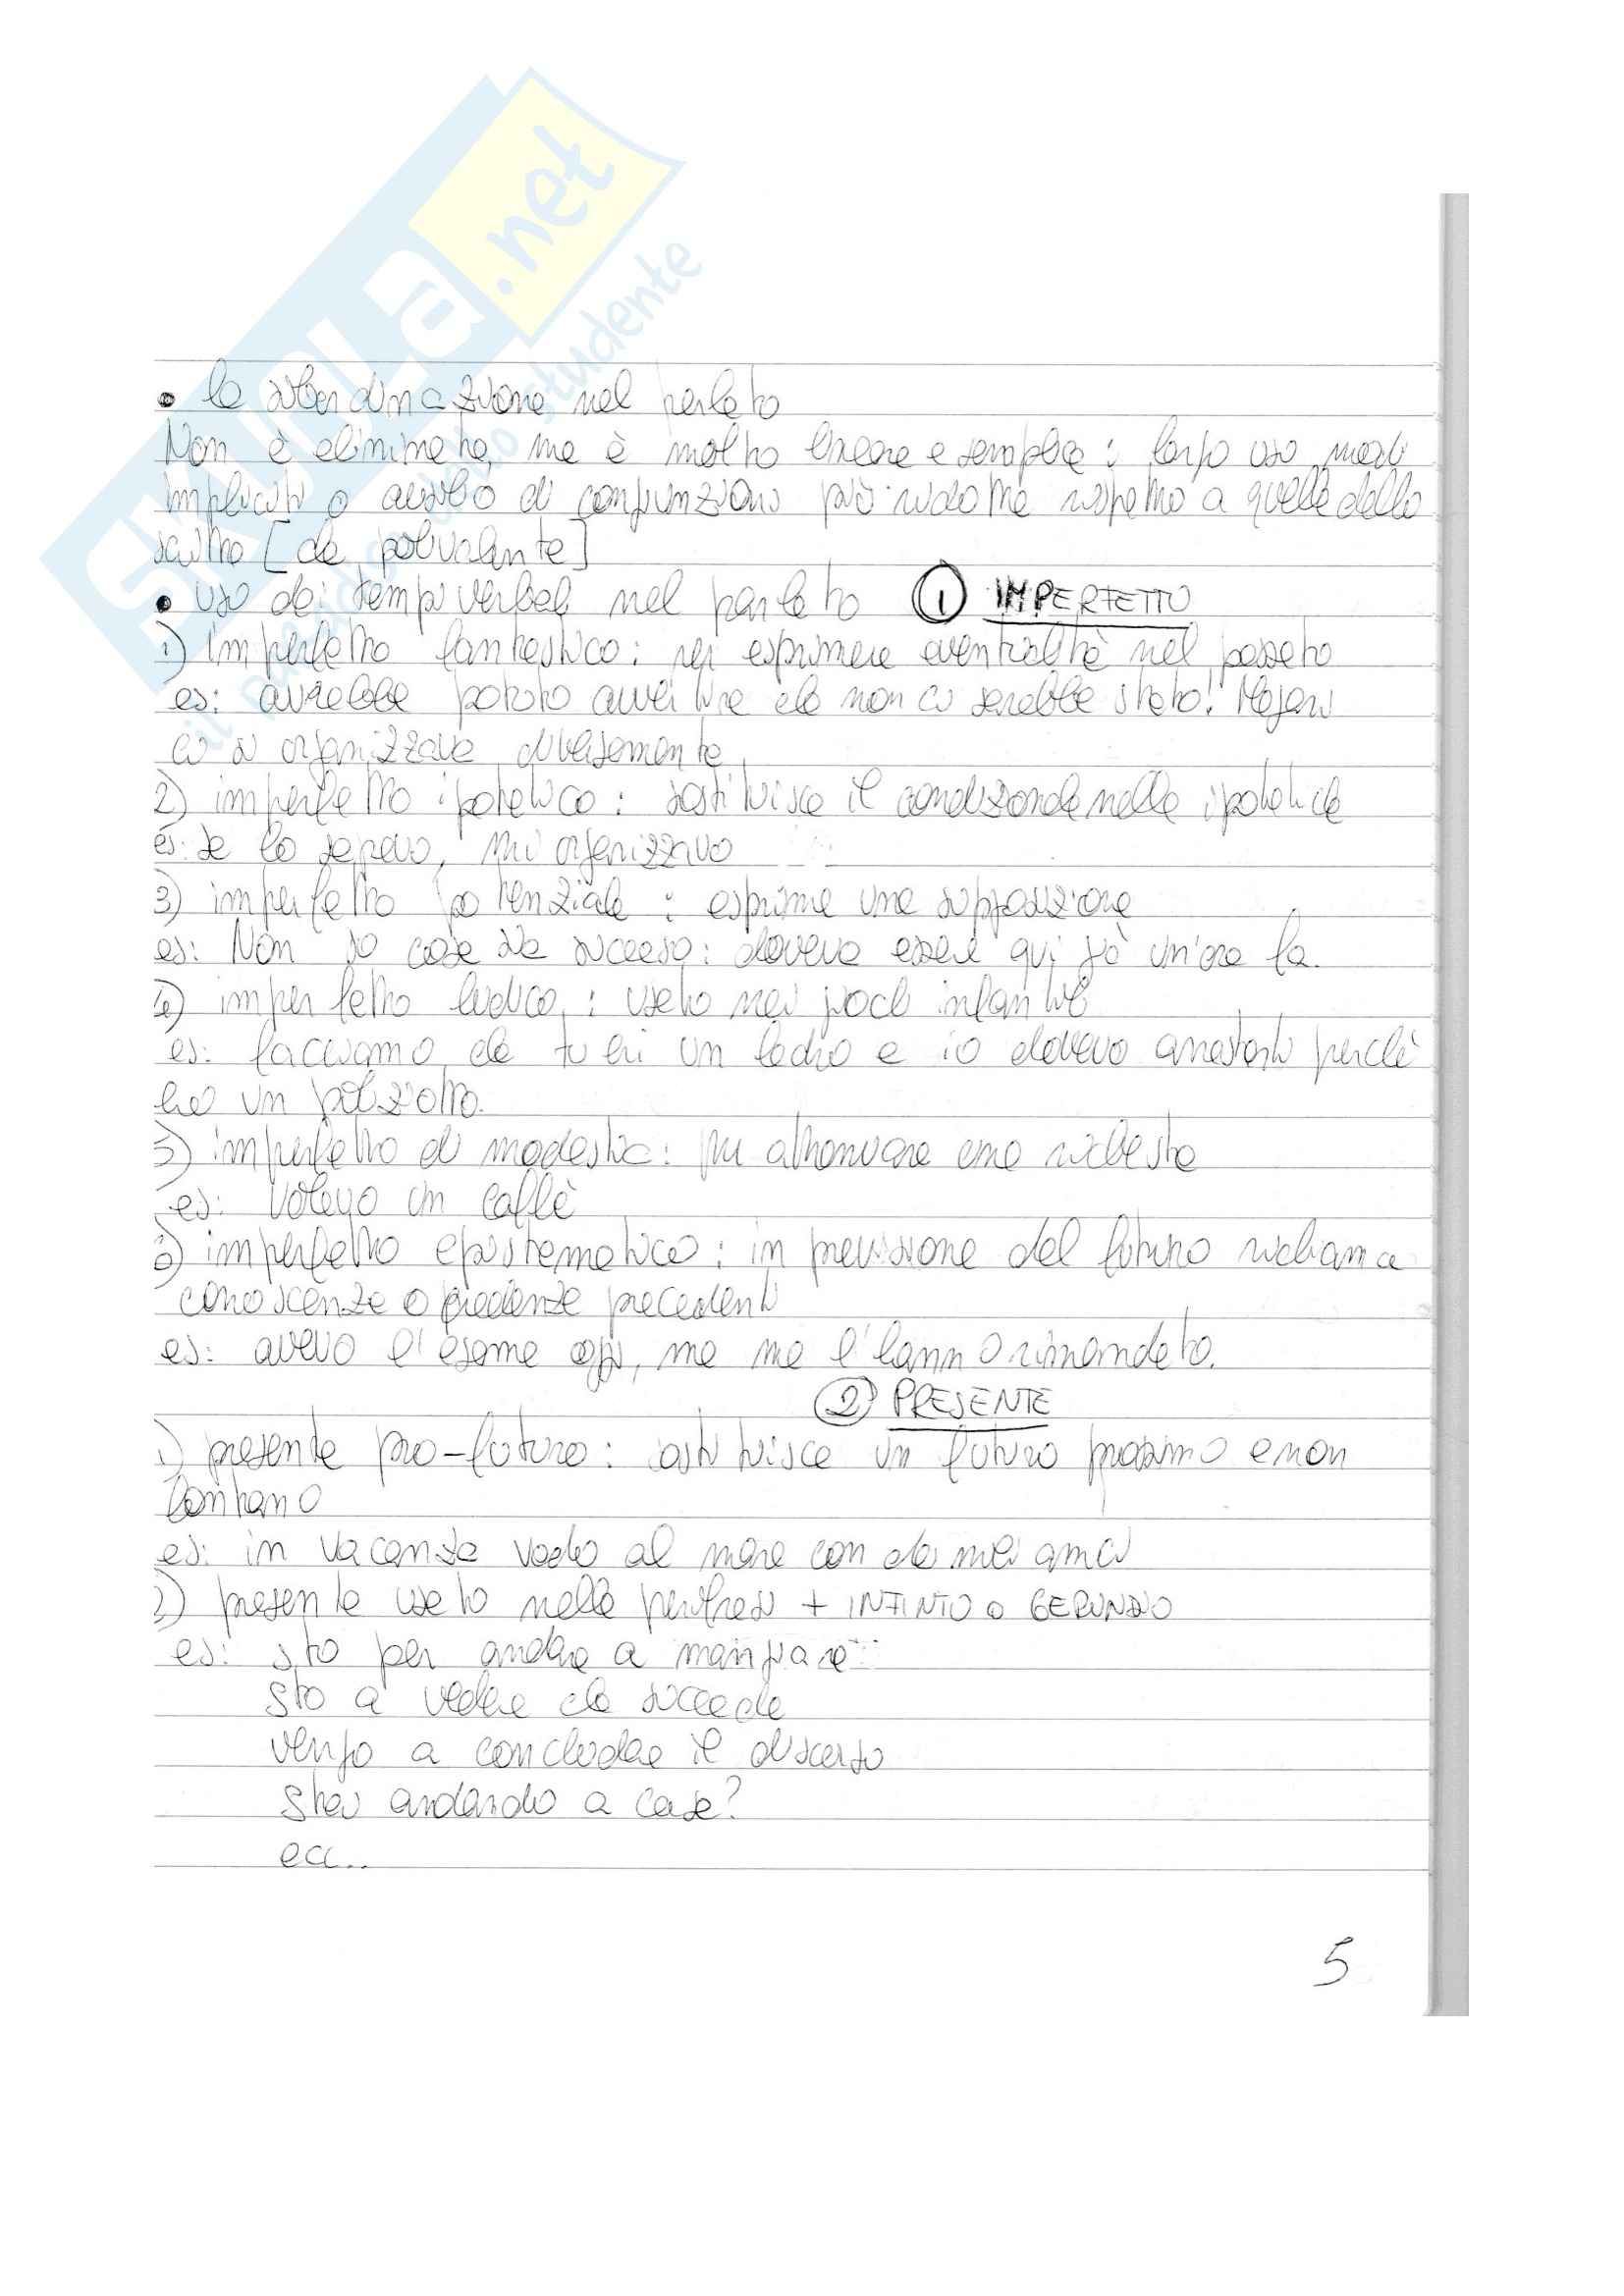 SKUOLA.net
il paradiso dello studente
• la subordinazione nel parlato
Non è eliminata, ma è molto lineare e semplice: largo uso modi
impliciti o ausilio di congiunzioni più ridotte rispetto a quelle dello
scritto [che polivalente]
• uso dei tempi verbali nel parlato ① IMPERFETTO
1) imperfetto fantastico: per esprimere eventualità nel passato
es: avrebbe potuto avvertire che non ci sarebbe stato! Magari
ci si organizzava diversamente
2) imperfetto ipotetico: sostituisce il condizionale nelle ipotetiche
es: se lo sapevo, mi organizzavo
3) imperfetto potenziale: esprime una supposizione
es: Non so cosa sia successo: doveva essere qui già un'ora fa.
4) imperfetto ludico: usato nei giochi infantili
es: facciamo che tu eri un ladro e io dovevo arrestarti perché
ero un poliziotto.
5) imperfetto di modestia: per attenuare una richiesta
es: volevo un caffè
6) imperfetto epistematico: in previsione del futuro richiama
conoscenze o credenze precedenti
es: avevo l'esame oggi, ma me l'hanno rimandato.
② PRESENTE
1) presente pro-futuro: sostituisce un futuro prossimo e non
lontano
es: in vacanza vado al mare con dei miei amici
2) presente usato nelle perifrasi + INFINITO o GERUNDIO
es: sto per andare a mangiare
sto a vedere che succede
vengo a concludere il discorso
stai andando a casa?
ecc..
5